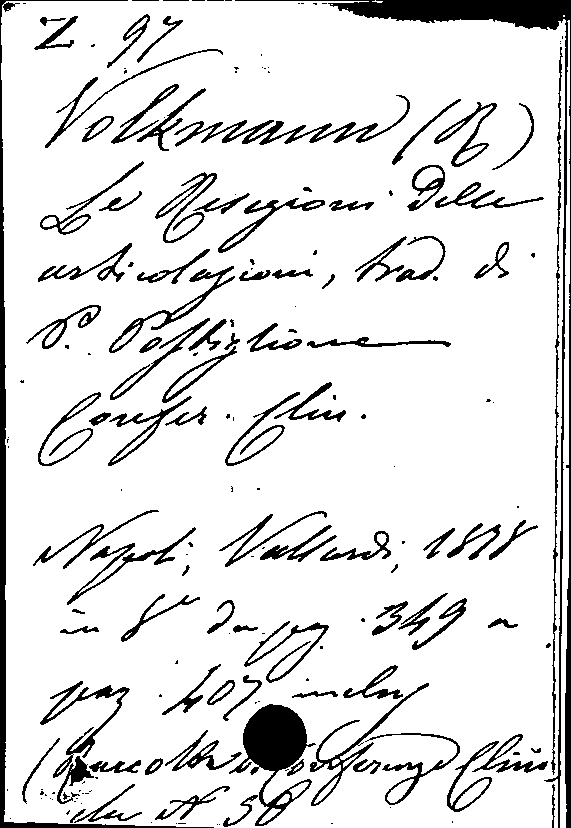 Z. 97
Volkmann (R)
Le Resezioni delle
articolazioni, trad. di
P. Postiglione
Confer. Clin.
Napoli, Vallardi, 1878
in 8° da pag. 349 a
pag. 407 inclus
(Raccolta di Conferenze Clini
che N 50